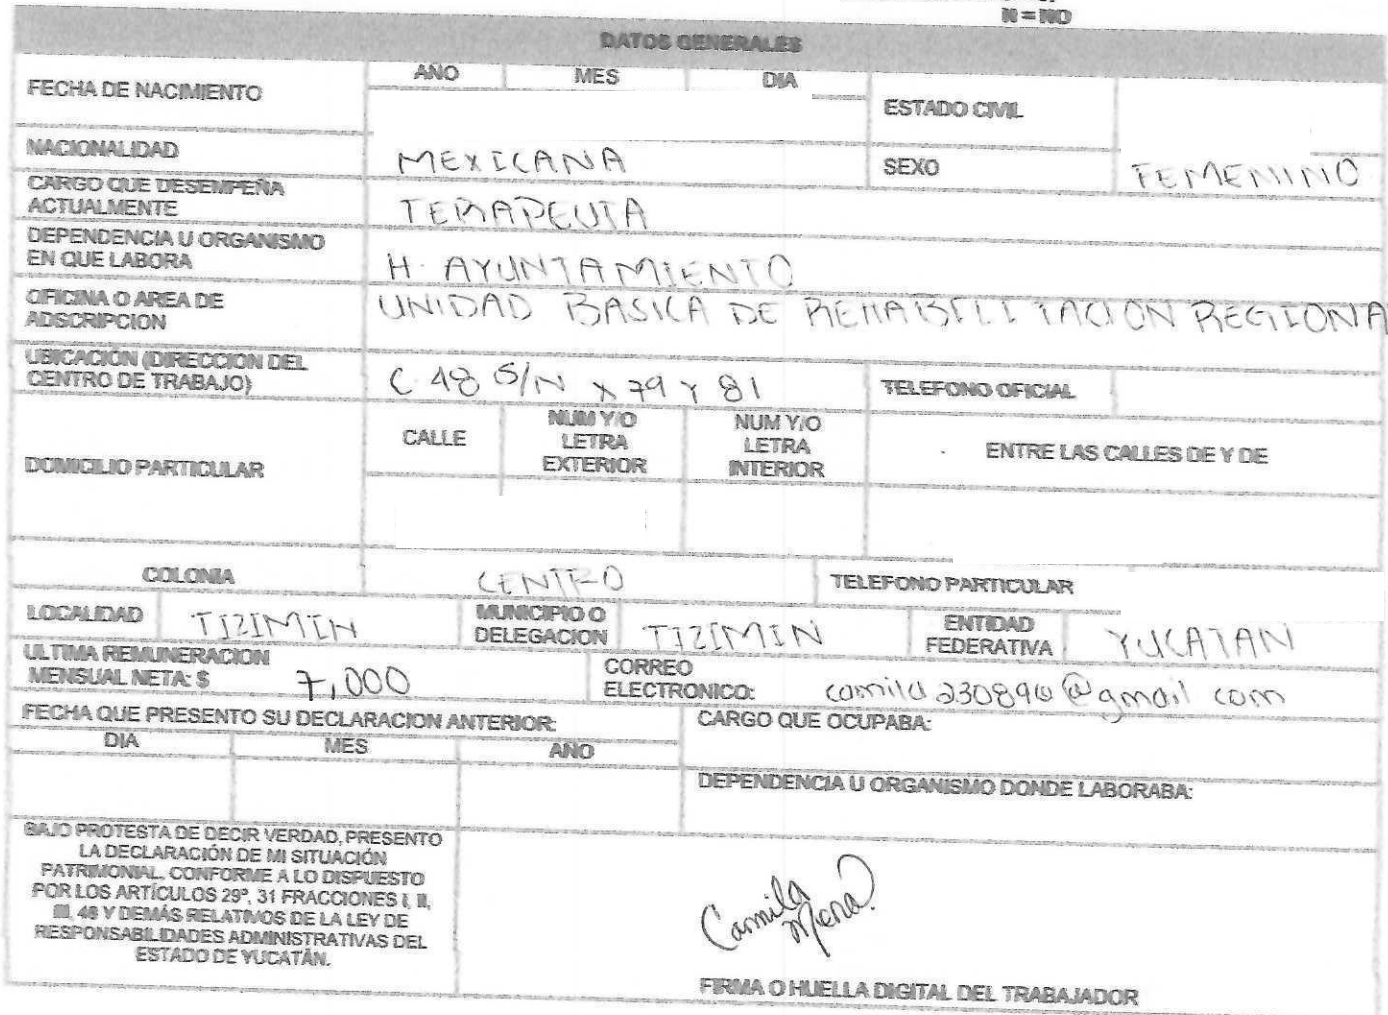 N = NO
DATOS GENERALES
FECHA DE NACIMIENTO
AÑO MES DIA
ESTADO CIVIL
NACIONALIDAD MEXICANA SEXO FEMENINO
CARGO QUE DESEMPEÑA
ACTUALMENTE TERAPEUTA
DEPENDENCIA U ORGANISMO
EN QUE LABORA H. AYUNTAMIENTO
OFICINA O AREA DE
ADSCRIPCION UNIDAD BASICA DE REHABILITACION REGIONA
UBICACIÓN (DIRECCION DEL
CENTRO DE TRABAJO) C 48 S/N X 79 Y 81 TELEFONO OFICIAL
DOMICILIO PARTICULAR
CALLE
NUM Y/O
LETRA
EXTERIOR
NUM Y/O
LETRA
INTERIOR
ENTRE LAS CALLES DE Y DE
COLONIA CENTRO TELEFONO PARTICULAR
LOCALIDAD TIZIMIN
MUNICIPIO O
DELEGACION TIZIMIN
ENTIDAD
FEDERATIVA YUCATAN
ULTIMA REMUNERACION
MENSUAL NETA: $ 7,000
CORREO
ELECTRONICO: camila230896@gmail com
FECHA QUE PRESENTO SU DECLARACION ANTERIOR:
CARGO QUE OCUPABA:
DIA MES AÑO
DEPENDENCIA U ORGANISMO DONDE LABORABA:
BAJO PROTESTA DE DECIR VERDAD, PRESENTO
LA DECLARACIÓN DE MI SITUACIÓN
PATRIMONIAL, CONFORME A LO DISPUESTO
POR LOS ARTÍCULOS 29º, 31 FRACCIONES I, II,
III, 48 Y DEMÁS RELATIVOS DE LA LEY DE
RESPONSABILIDADES ADMINISTRATIVAS DEL
ESTADO DE YUCATÁN.
Camila
Mena
FIRMA O HUELLA DIGITAL DEL TRABAJADOR